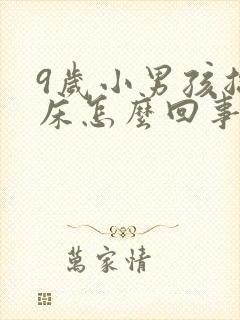 9歲小男孩
床怎麼回事
萬家情